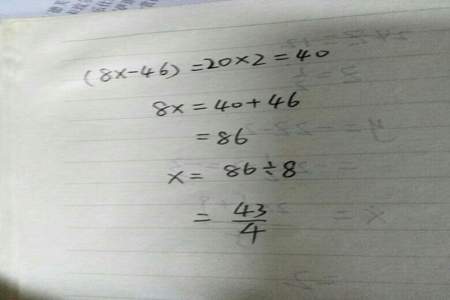 (8x-46)=20×2=40
8x=40+46
=86
x= 86÷8
= 43/4